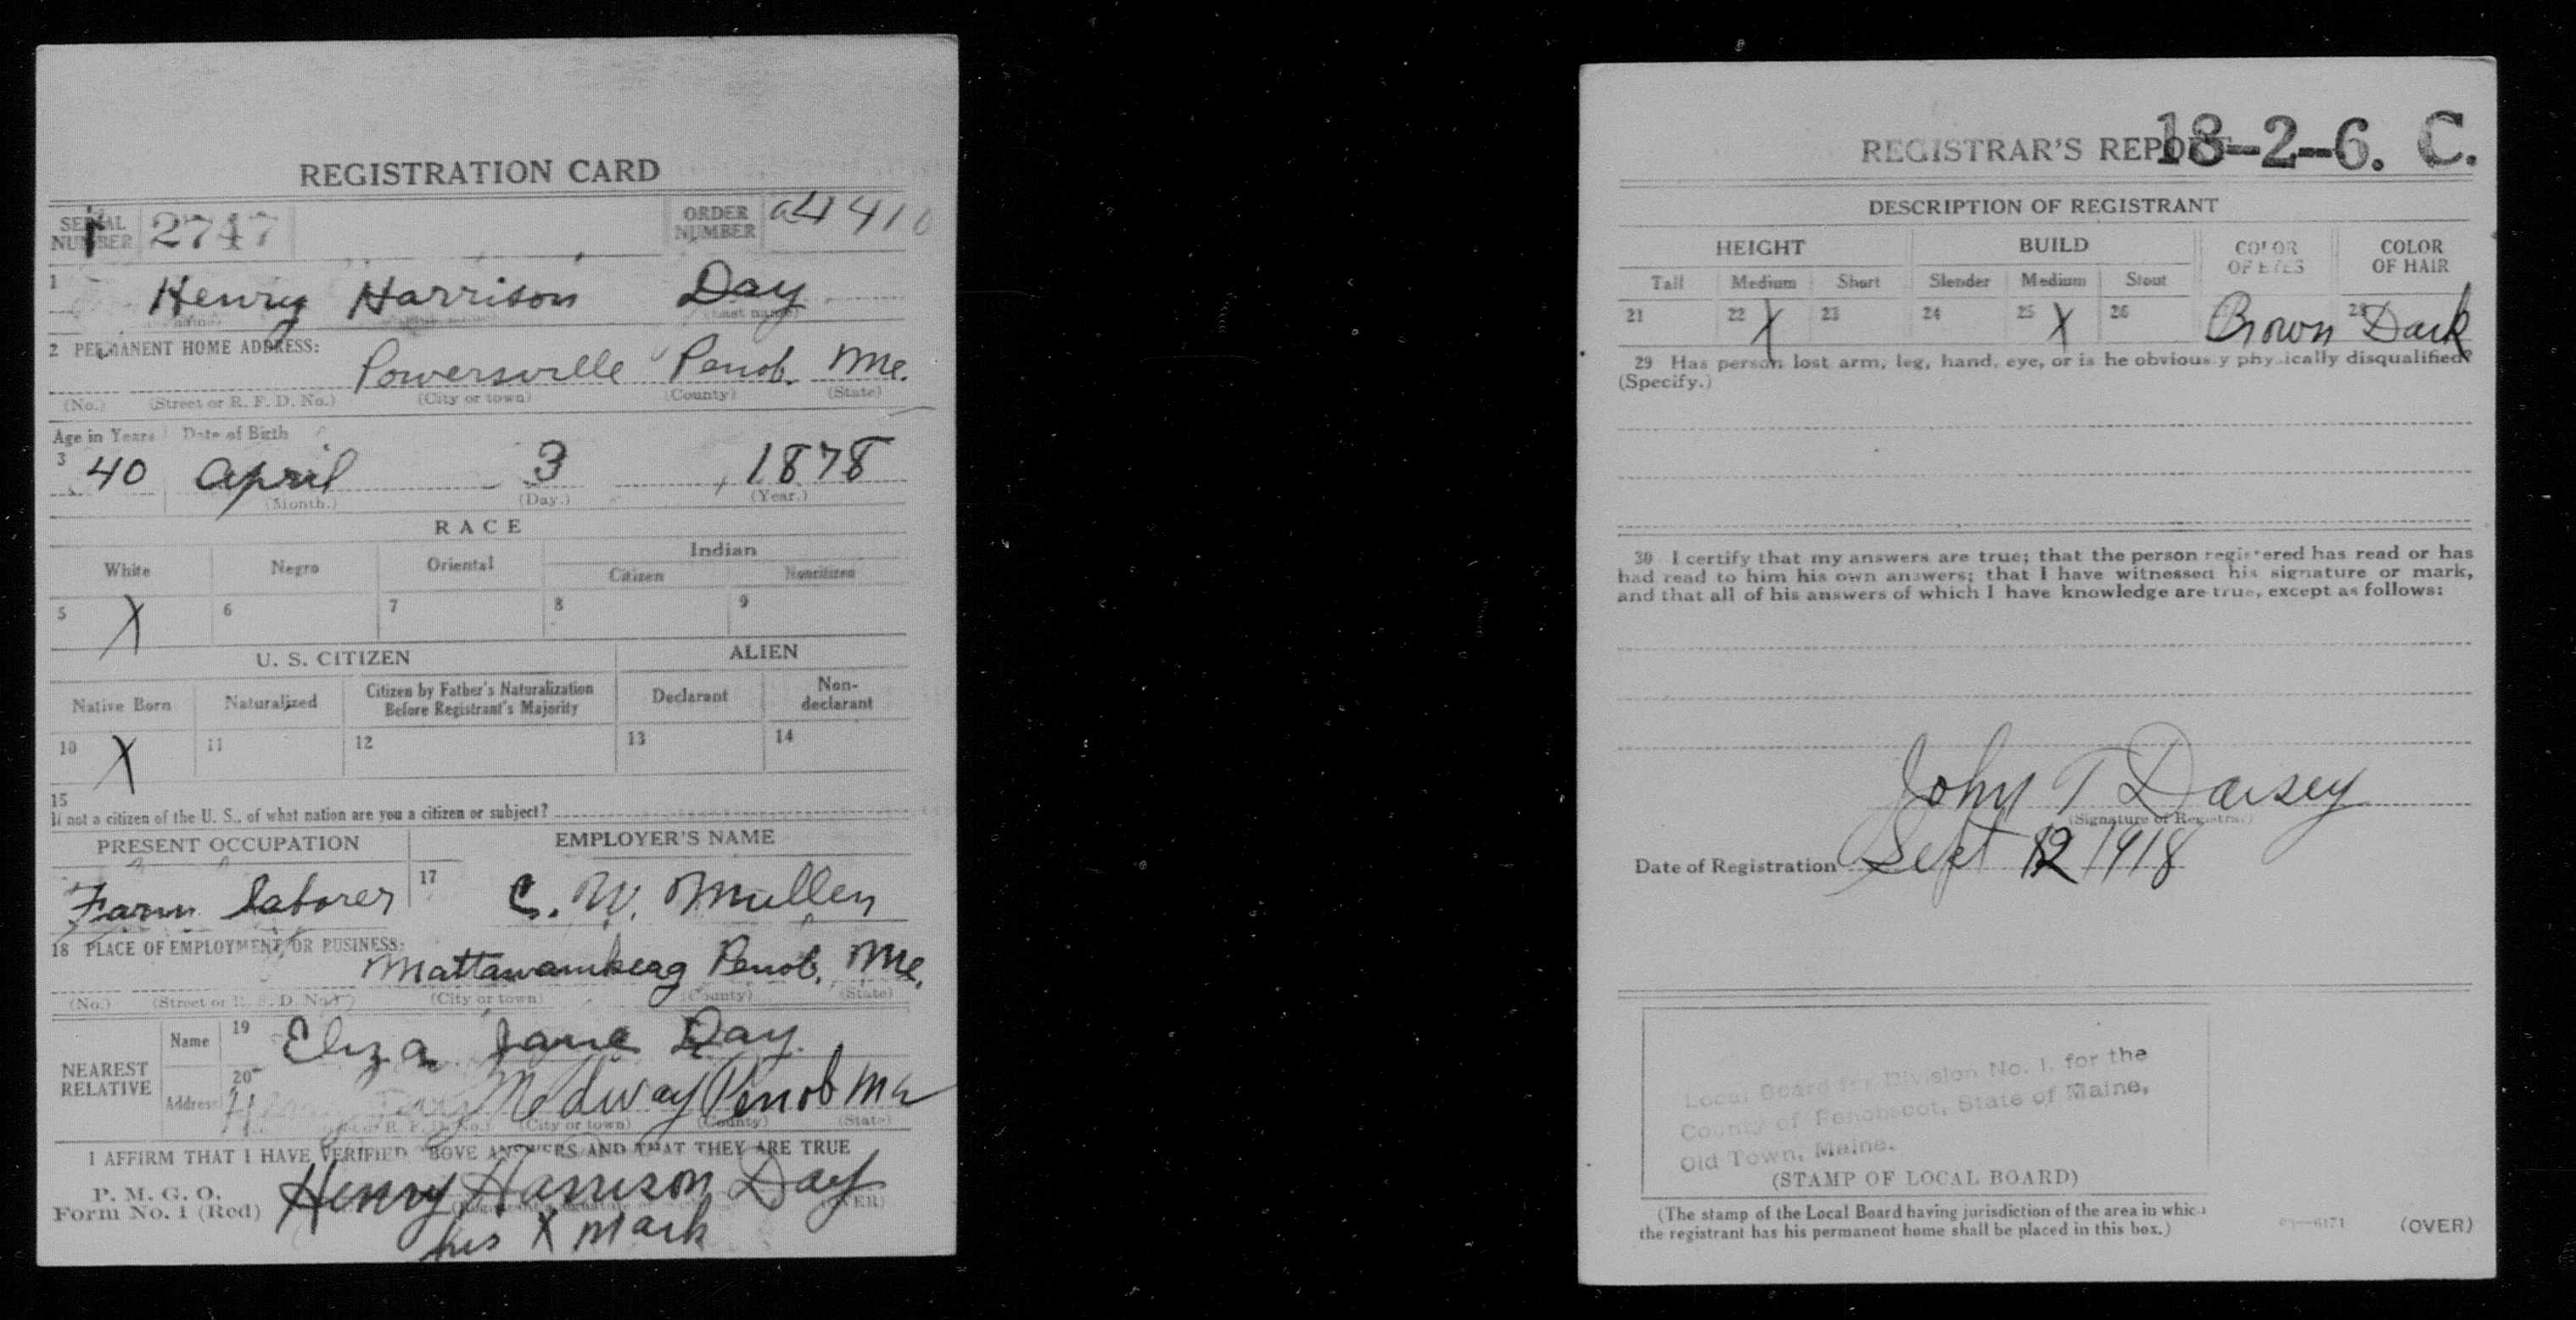 REGISTRATION CARD
SERIAL NUMBER 2747 ORDER NUMBER a4410
1 Henry Harrison Day
(Last name)
2 PERMANENT HOME ADDRESS:
Powersville Penob. Me.
(No.) (Street or R. F. D. No.) (City or town) (County) (State)
Age in Years Date of Birth
3 40 April 3 , 1878
(Month.) (Day.) (Year.)
RACE
White Negro Oriental Indian
Citizen Noncitizen
5 X 6 7 8 9
U. S. CITIZEN ALIEN
Native Born Naturalized Citizen by Father's Naturalization Before Registrant's Majority Declarant Non-declarant
10 X 11 12 13 14
15
If not a citizen of the U. S., of what nation are you a citizen or subject?
PRESENT OCCUPATION EMPLOYER'S NAME
Farm laborer 17 C. W. Mullen
18 PLACE OF EMPLOYMENT OR BUSINESS:
Mattawamkeag Penob. Me.
(No.) (Street or R. F. D. No.) (City or town) (County) (State)
NEAREST RELATIVE
Name 19 Eliza Jane Day.
Address 20 Medway Penob Me
(City or town) (County) (State)
I AFFIRM THAT I HAVE VERIFIED ABOVE ANSWERS AND THAT THEY ARE TRUE
P. M. G. O.
Form No. 1 (Red) Henry Harrison Day
(OVER)
his X mark
REGISTRAR'S REPORT 18-2-6. C.
DESCRIPTION OF REGISTRANT
HEIGHT BUILD COLOR OF EYES COLOR OF HAIR
Tall Medium Short Slender Medium Stout
21 22 X 23 24 25 X 26 Brown 28 Dark
29 Has person lost arm, leg, hand, eye, or is he obviously physically disqualified?
(Specify.)
30 I certify that my answers are true; that the person registered has read or has
had read to him his own answers; that I have witnessed his signature or mark,
and that all of his answers of which I have knowledge are true, except as follows:
John T Darsey
(Signature of Registrar)
Date of Registration Sept 12 1918
Local Board for Division No. 1, for the
County of Penobscot, State of Maine,
Old Town, Maine.
(STAMP OF LOCAL BOARD)
(The stamp of the Local Board having jurisdiction of the area in which
the registrant has his permanent home shall be placed in this box.)
(OVER)